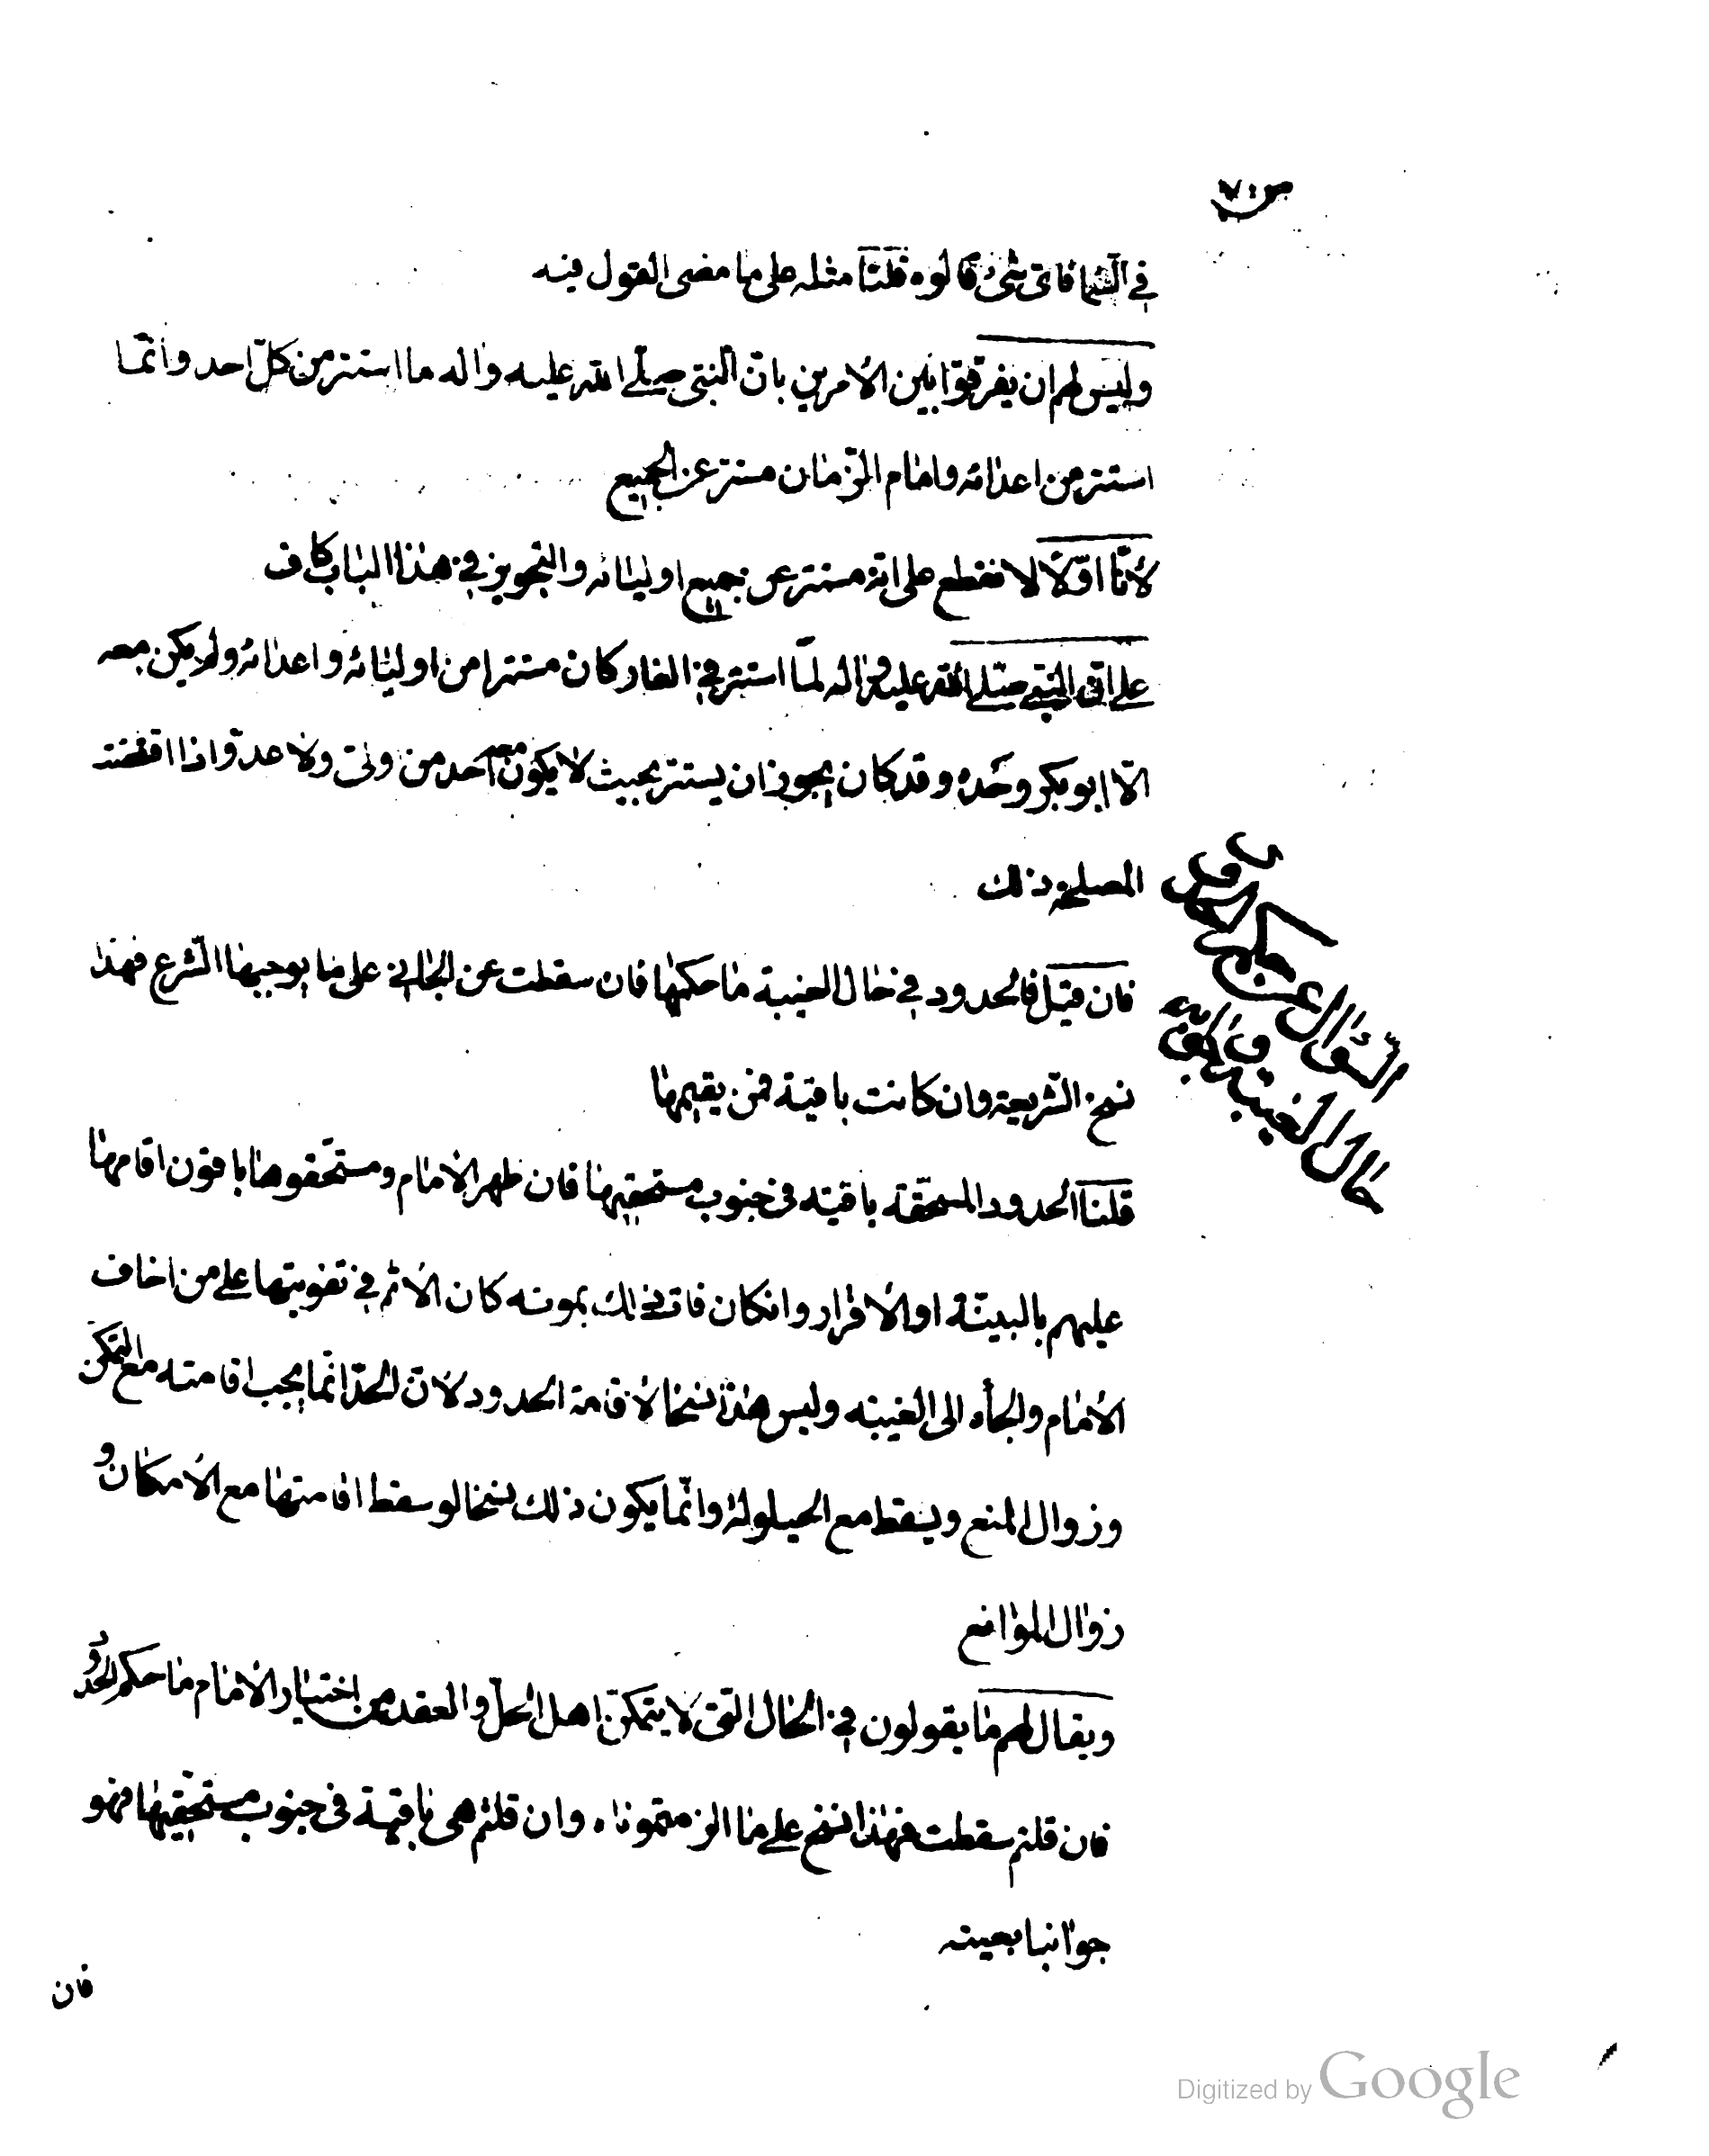 في السما فاي شئ قالوه قلنا مثله على ما مضى القول فيه
وليس لهم ان يفرقوا بين الأمرين بان النبي صلى الله عليه واله ما استتر من كل احد وانما
استتر من اعدائه وامام الزمان مستتر عن الجميع
لأنا اولا لا نقطع على انه مستتر عن جميع اوليائه والتجويز في هذا الباب كاف
على ان النبي صلى الله عليه واله لما استتر في الغار كان مستترا من اوليائه واعدائه ولم يكن معه
الا ابو بكر وحده وقد كان يجوز ان يستتر بحيث لا يكون معه احد من ولي ولا عدو اذا اقتضت
المصلحة ذلك
فان قيل فالحدود في حال الغيبة ما حكمها فان سقطت عن الجاني على ما يوجبها الشرع فهذا
نسخ الشريعة وان كانت باقية فمن يقيمها
قلنا الحدود المستحقة باقية في جنوب مستحقيها فان ظهر الامام ومستحقوها باقون اقامها
عليهم بالبينة او الاقرار وانكان فات ذلك بموته كان الأثم في تفويتها على من اخاف
الأمام والجأه الى الغيبة وليس هذا نسخا لأقامة الحدود لأن الحد انما يجب اقامته مع التمكن
وزوال المنع ويسقط مع الحيلولة وانما يكون ذلك نسخا لو سقط اقامتها مع الأمكان و
زوال الموانع
ويقال لهم ما يقولون في الحال التي لا يتمكن اهل الحل والعقد من اختيار الأمام ما حكم الحدود
فان قلتم سقطت فهذا نسخ على ما الزمتموناه وان قلتم هي باقية في جنوب مستحقيها فهو
جوابنا بعينه
فان
السؤال عن حكم الحدود في
حال الغيبة
Digitized by Google